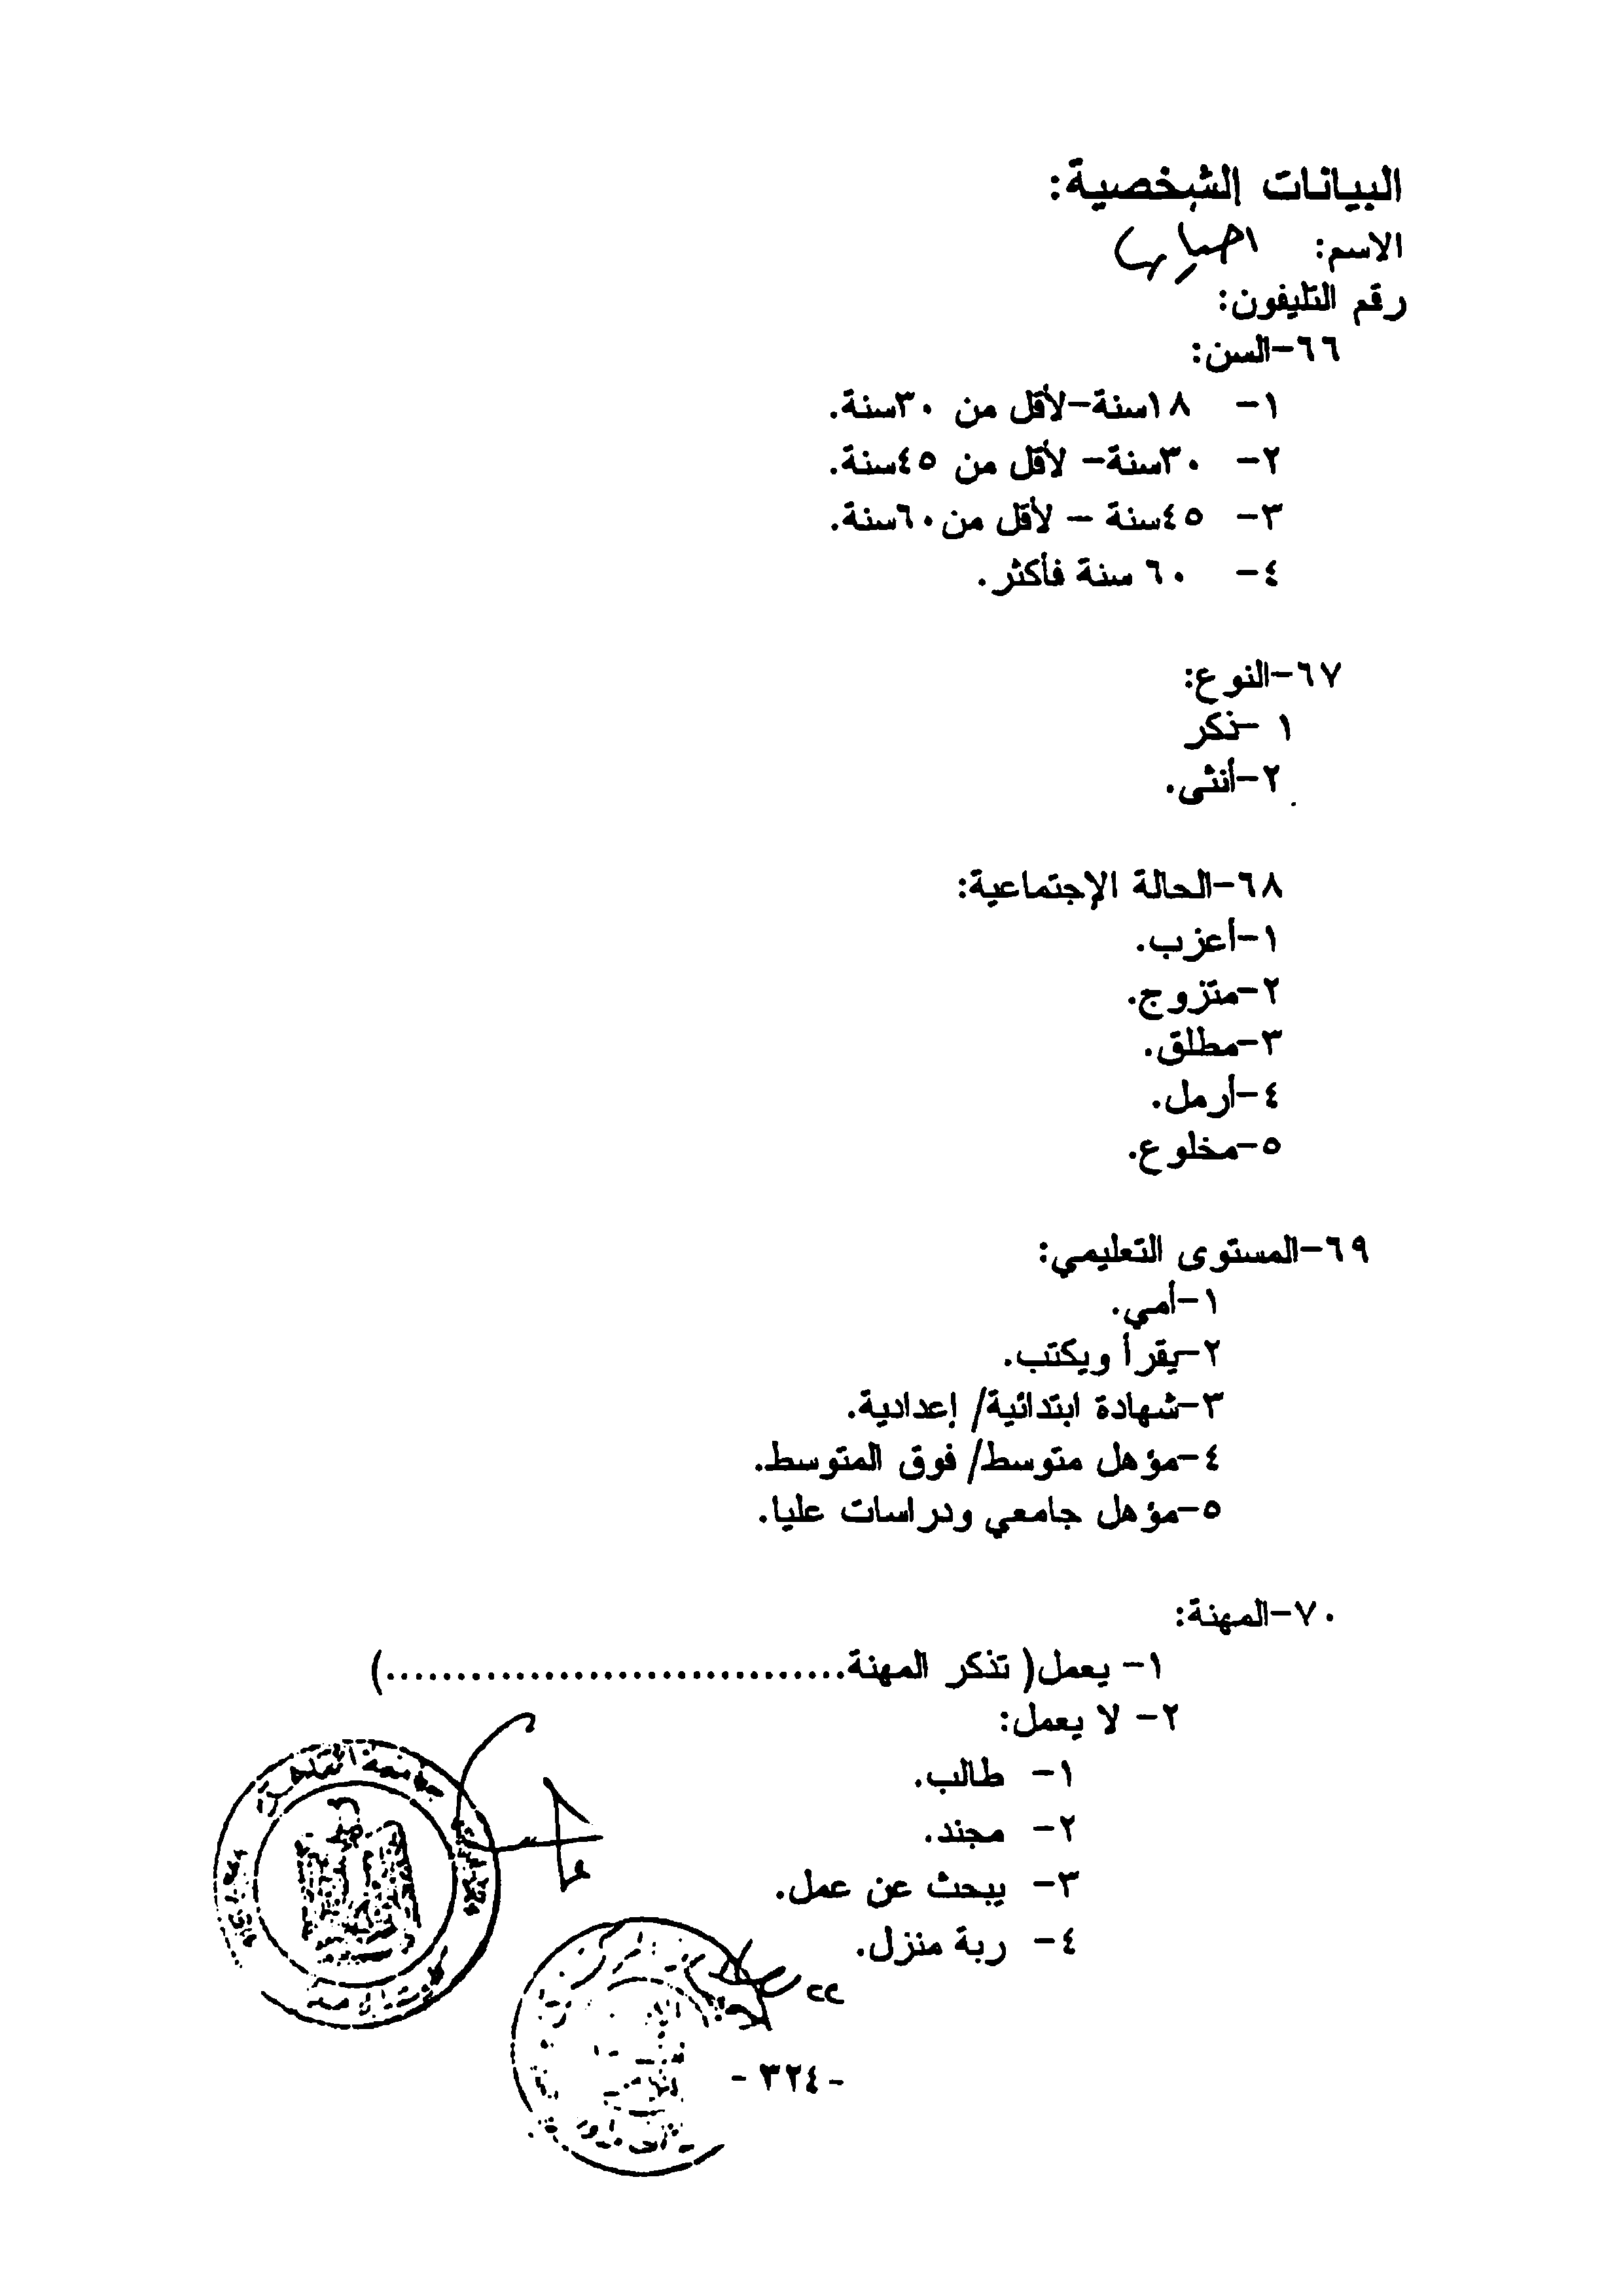 البيانات الشخصية:
الاسم:
رقم التليفون:
٦٦-السن:
١- ١٨سنة-لأقل من ٣٠سنة.
٢- ٣٠سنة- لأقل من ٤٥سنة.
٣- ٤٥سنة – لأقل من٦٠سنة.
٤- ٦٠ سنة فأكثر.
٦٧-النوع:
١ -ذكر
٢-أنثى.
٦٨-الحالة الإجتماعية:
١-أعزب.
٢-متزوج.
٣-مطلق.
٤-أرمل.
٥-مخلوع.
٦٩-المستوى التعليمي:
١-أمي.
٢-يقرأ ويكتب.
٣-شهادة ابتدائية/ إعدادية.
٤-مؤهل متوسط/ فوق المتوسط.
٥-مؤهل جامعي ودراسات عليا.
٧٠-المهنة:
١- يعمل( تذكر المهنة...............................)
٢- لا يعمل:
١- طالب.
٢- مجند.
٣- يبحث عن عمل.
٤- ربة منزل.
- ٣٢٤ -